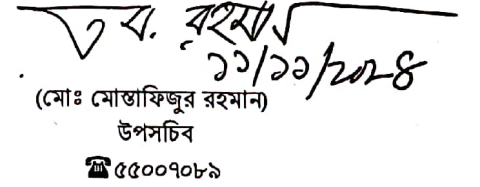 র. রহমান
১১/১১/২০২৪
(মোঃ মোস্তাফিজুর রহমান)
উপসচিব
☎৫৫০০৭০৮৯